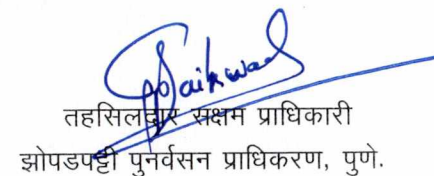 Gaikwad
तहसिलदार सक्षम प्राधिकारी
झोपडपट्टी पुनर्वसन प्राधिकरण, पुणे.